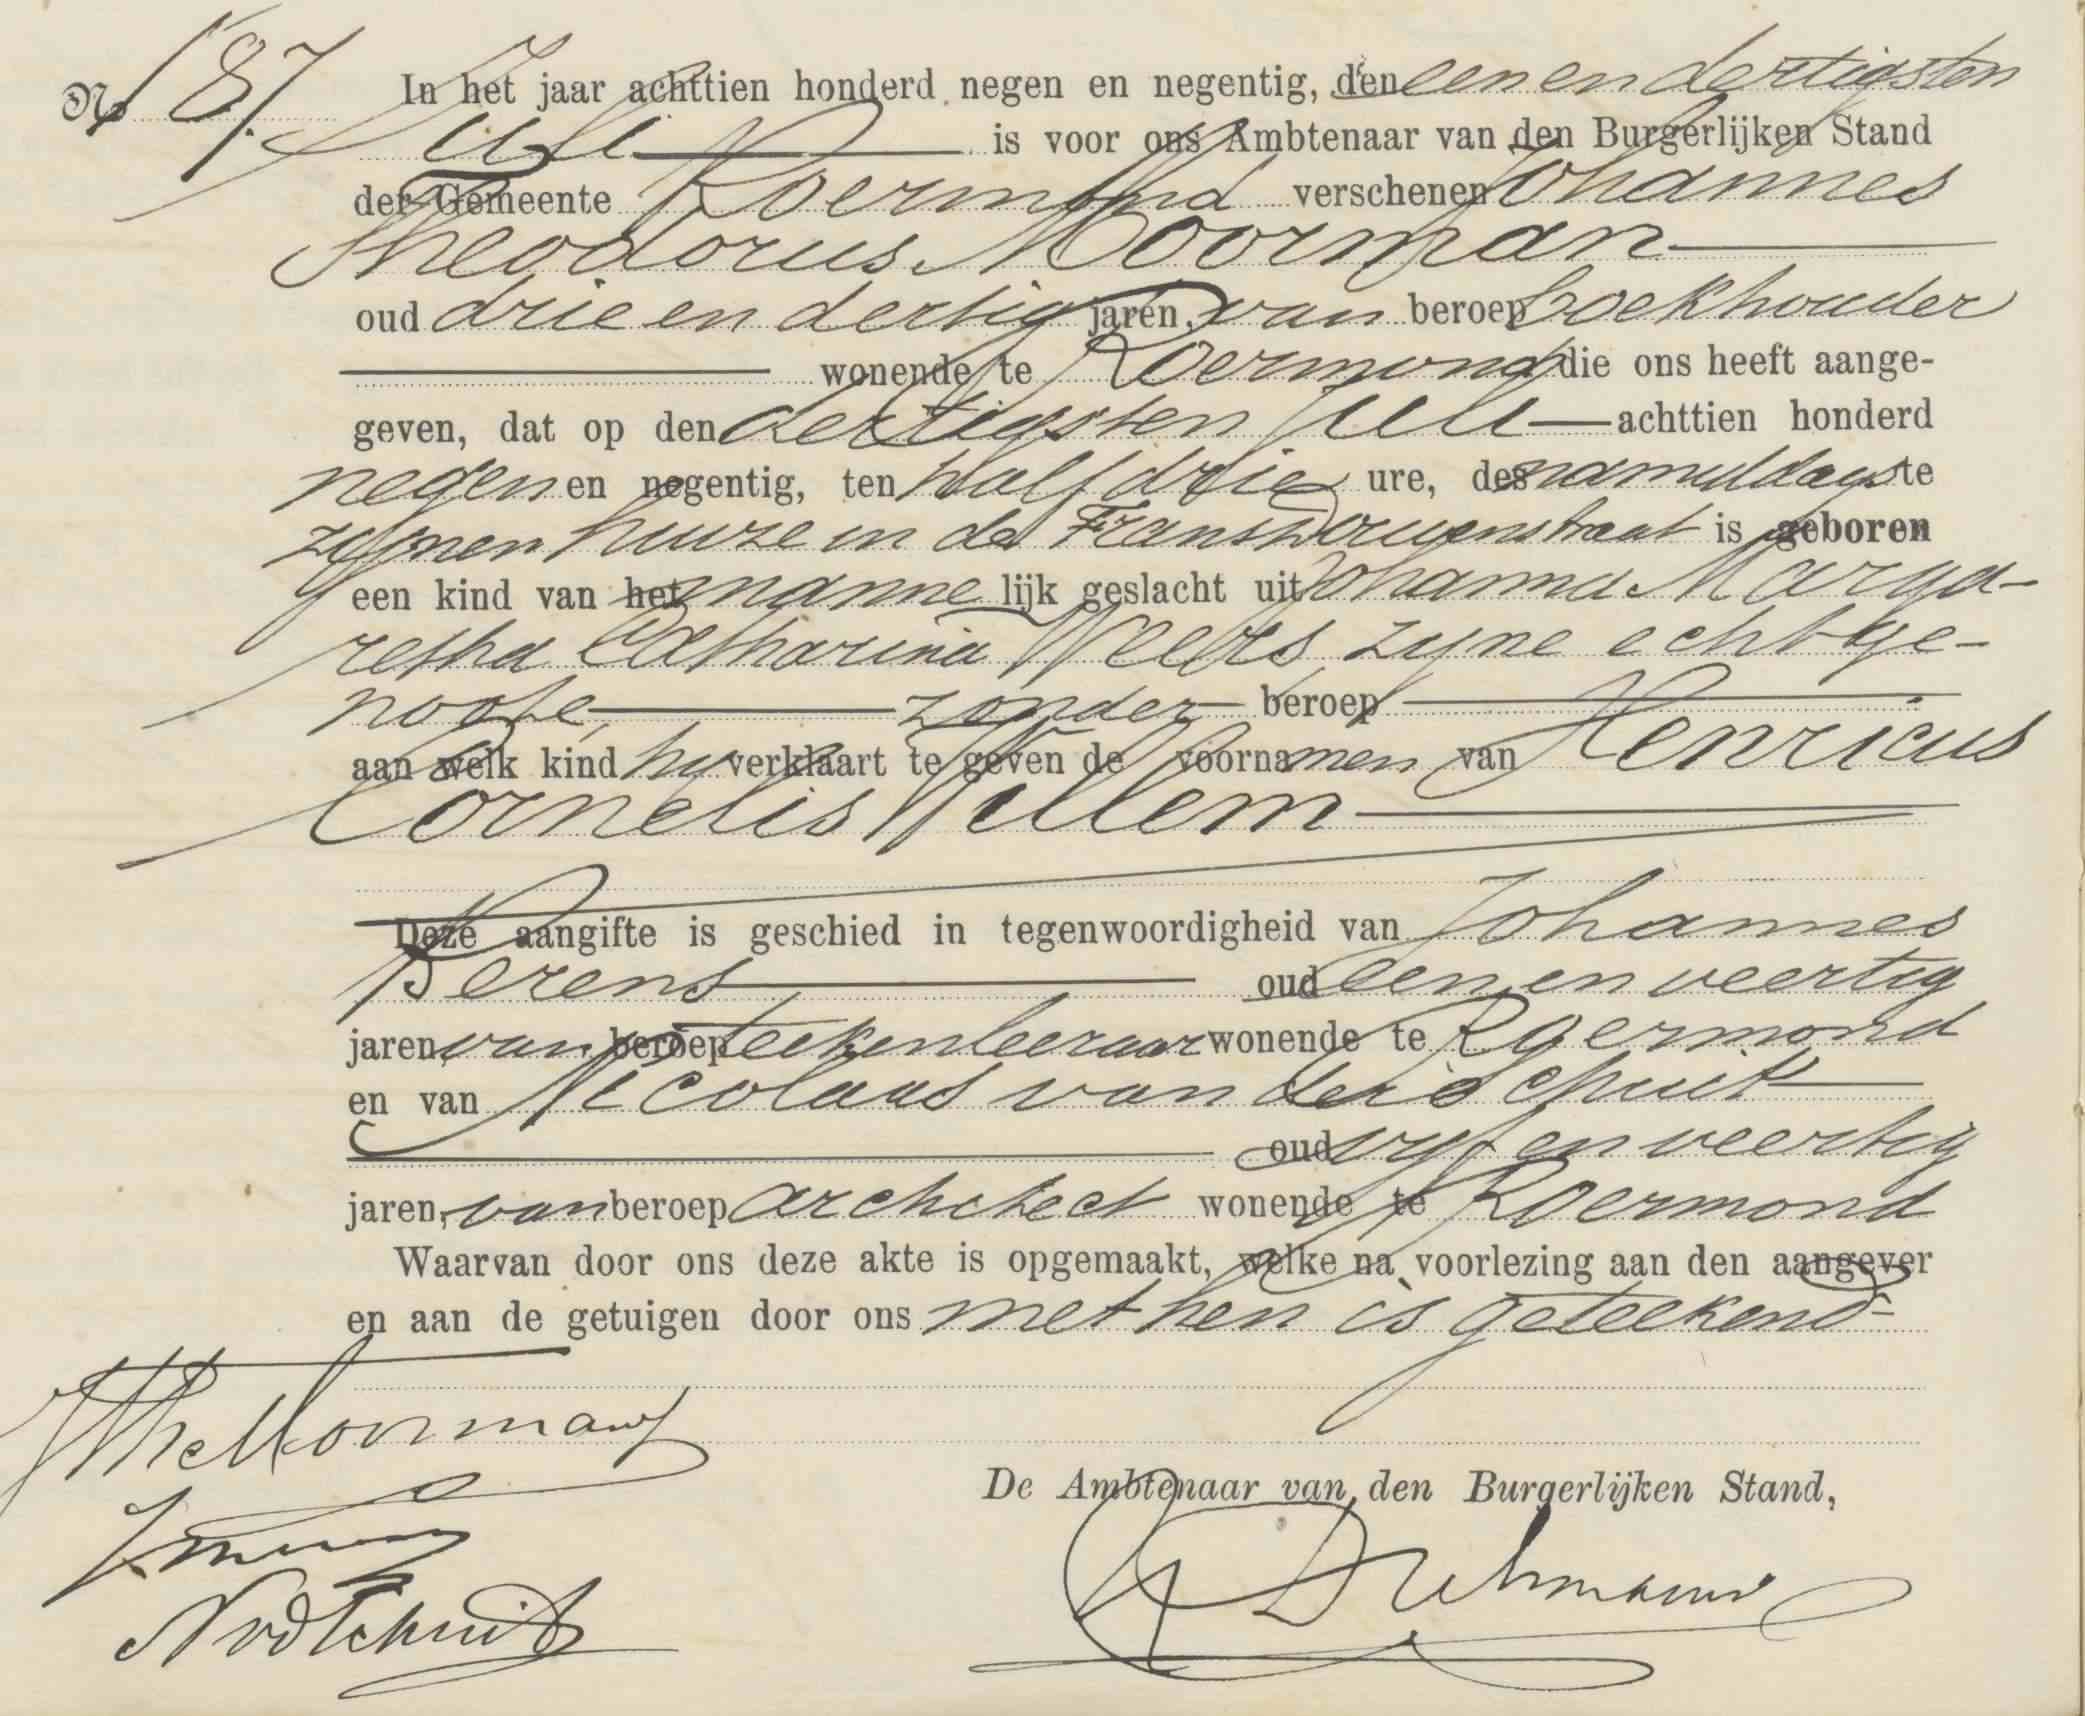 No 187. In het jaar achttien honderd negen en negentig, den een en dertigsten
Juli is voor ons Ambtenaar van den Burgerlijken Stand
der Gemeente Roermond verschenen Johannes
Theodorus Moorman
oud drie en dertig jaren, van beroep boekhouder
wonende te Roermond die ons heeft aange-
geven, dat op den dertigsten Juli achttien honderd
negen en negentig, ten half drie ure, des namiddags te
zijnen huize in de is geboren
een kind van het mannelijk geslacht uit Johanna Marga-
retha Catharina Weers, zijne echtge-
noote, zonder beroep
aan welk kind hij verklaart te geven de voornamen van Henricus
Cornelis Willem
Deze aangifte is geschied in tegenwoordigheid van Johannes
Berens oud een en veertig
jaren, van beroep teekenleeraar wonende te Roermond
en van Nicolaas van der Schuit
oud vijf en veertig
jaren, van beroep architect wonende te Roermond
Waarvan door ons deze akte is opgemaakt, welke na voorlezing aan den aangever
en aan de getuigen door ons met hen is geteekend
JTheMoorman
De Ambtenaar van den Burgerlijken Stand,
NvdSchuit